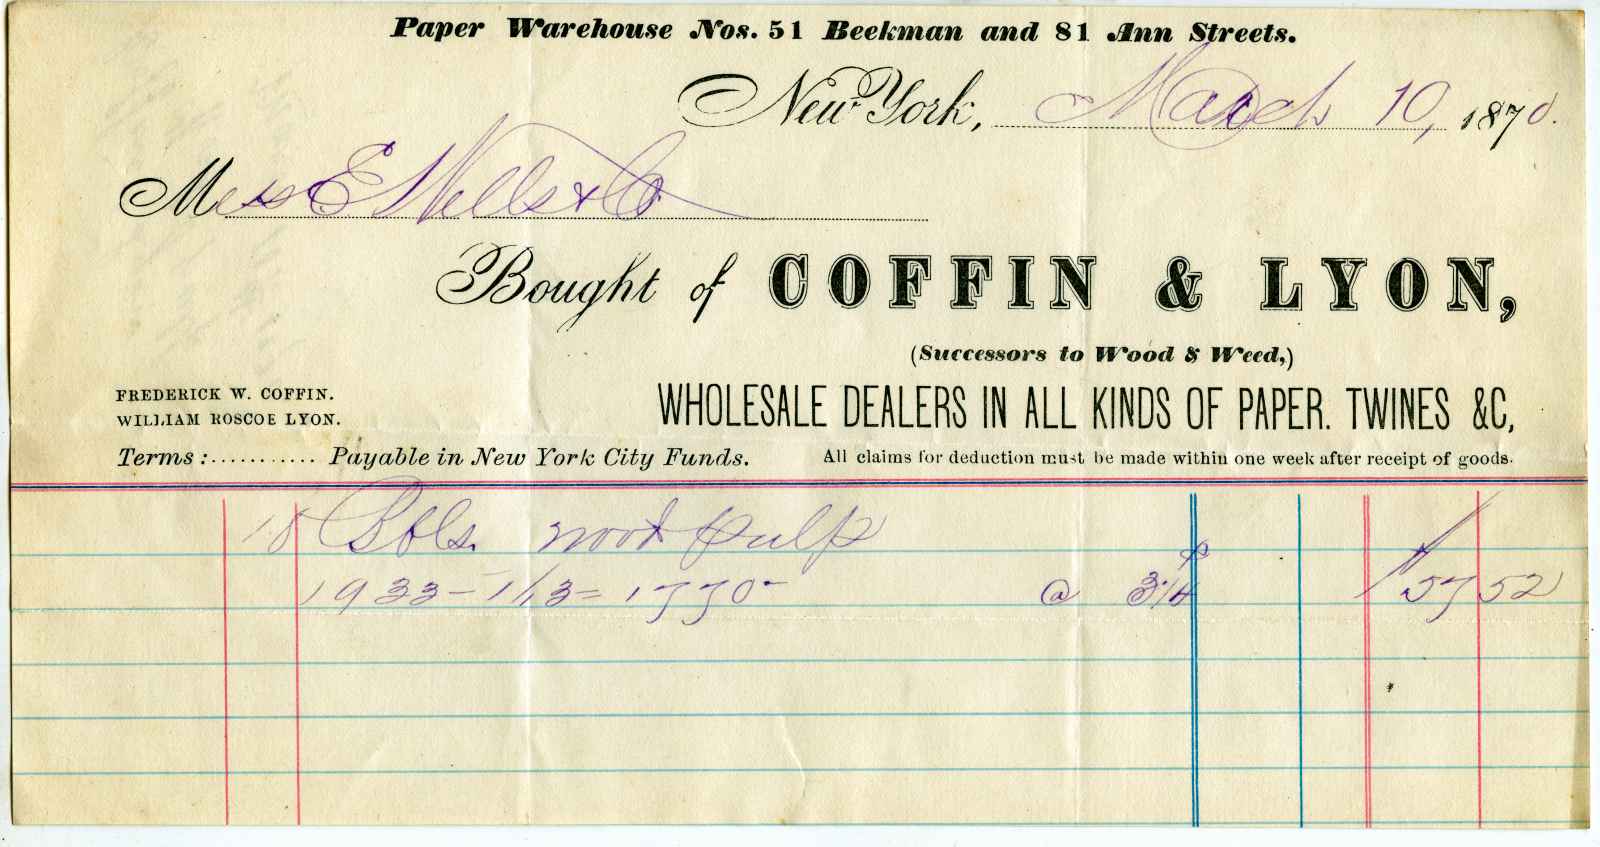 Paper Warehouse Nos. 51 Beekman and 81 Ann Streets.
New York, March 10, 1870.
Mess E Wells & Co
Bought of COFFIN & LYON,
(Successors to Wood & Weed,)
FREDERICK W. COFFIN.
WILLIAM ROSCOE LYON.
WHOLESALE DEALERS IN ALL KINDS OF PAPER. TWINES &C,
Terms :........... Payable in New York City Funds. All claims for deduction must be made within one week after receipt of goods.
18 Bbls. wood pulp
1933 - 163 = 1770 - @ 3 1/4 ¢ $57 52